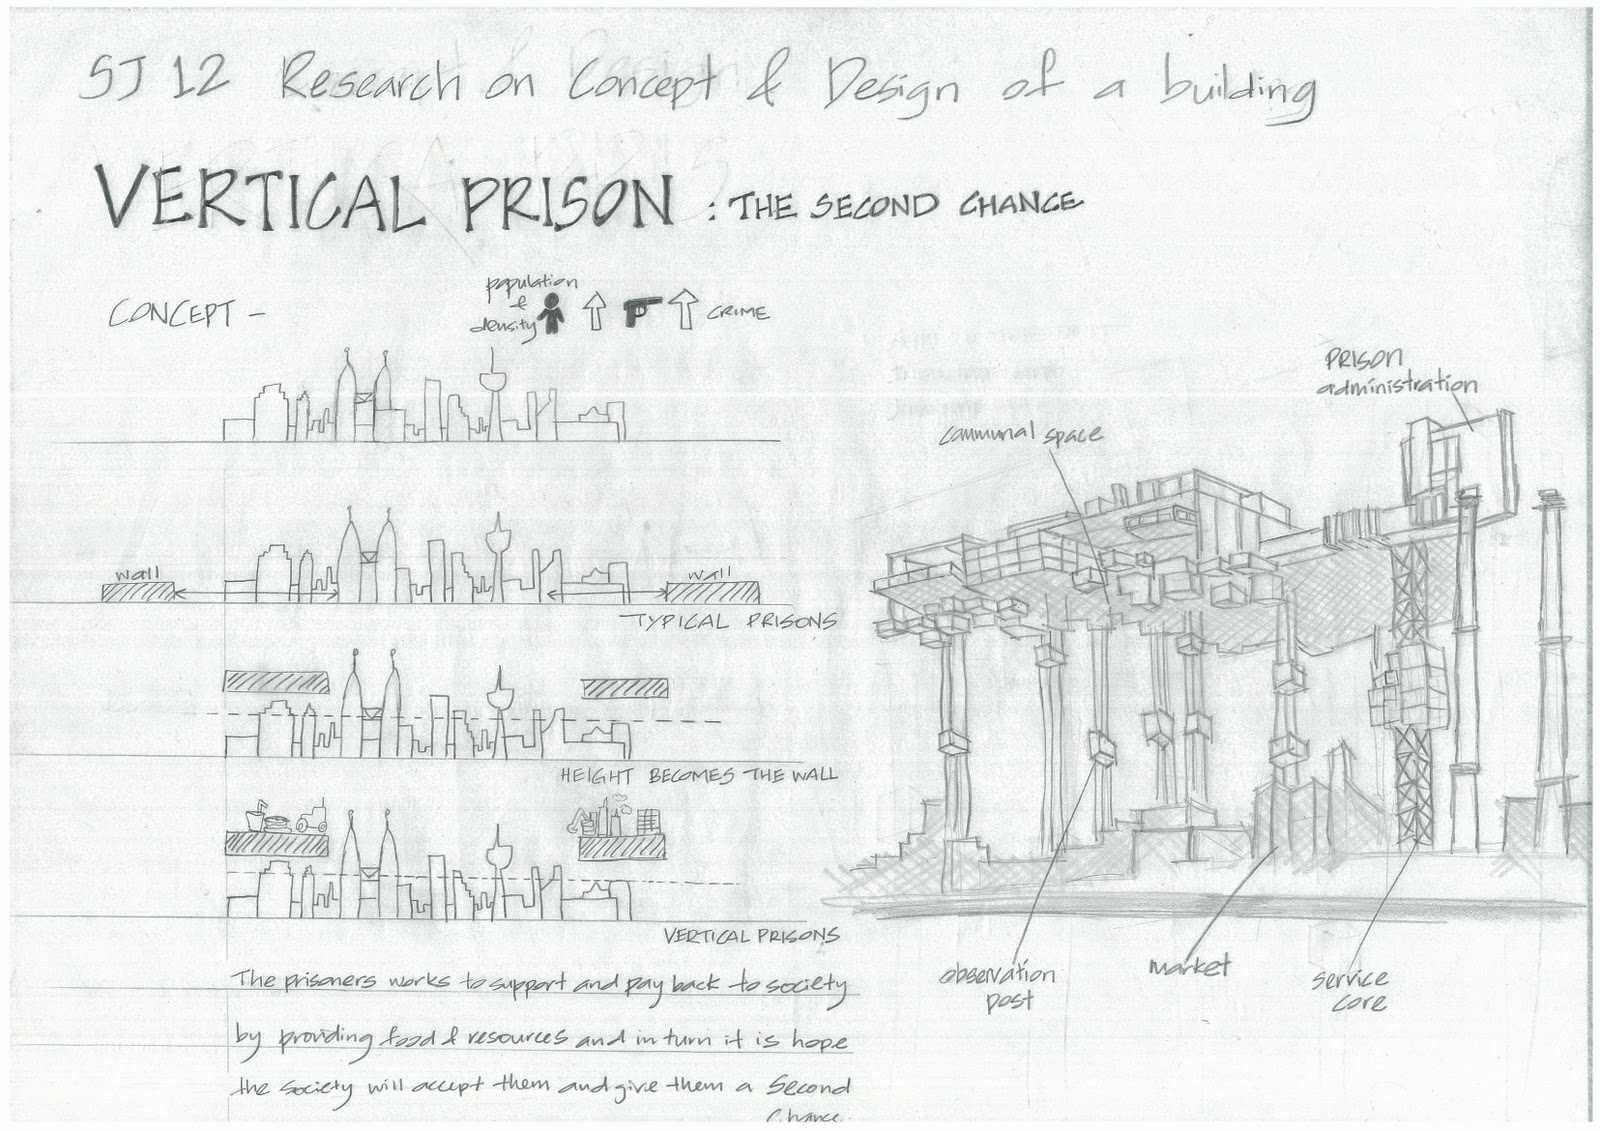 SJ 12 Research on Concept & Design of a building
VERTICAL PRISON : THE SECOND CHANCE
CONCEPT -
population
&
density
CRIME
wall
wall
TYPICAL PRISONS
HEIGHT BECOMES THE WALL
VERTICAL PRISONS
The prisoners works to support and pay back to society
by providing food & resources and in turn it is hope
the society will accept them and give them a Second
Chance.
PRISON
administration
communal space
observation
post
market
service
core